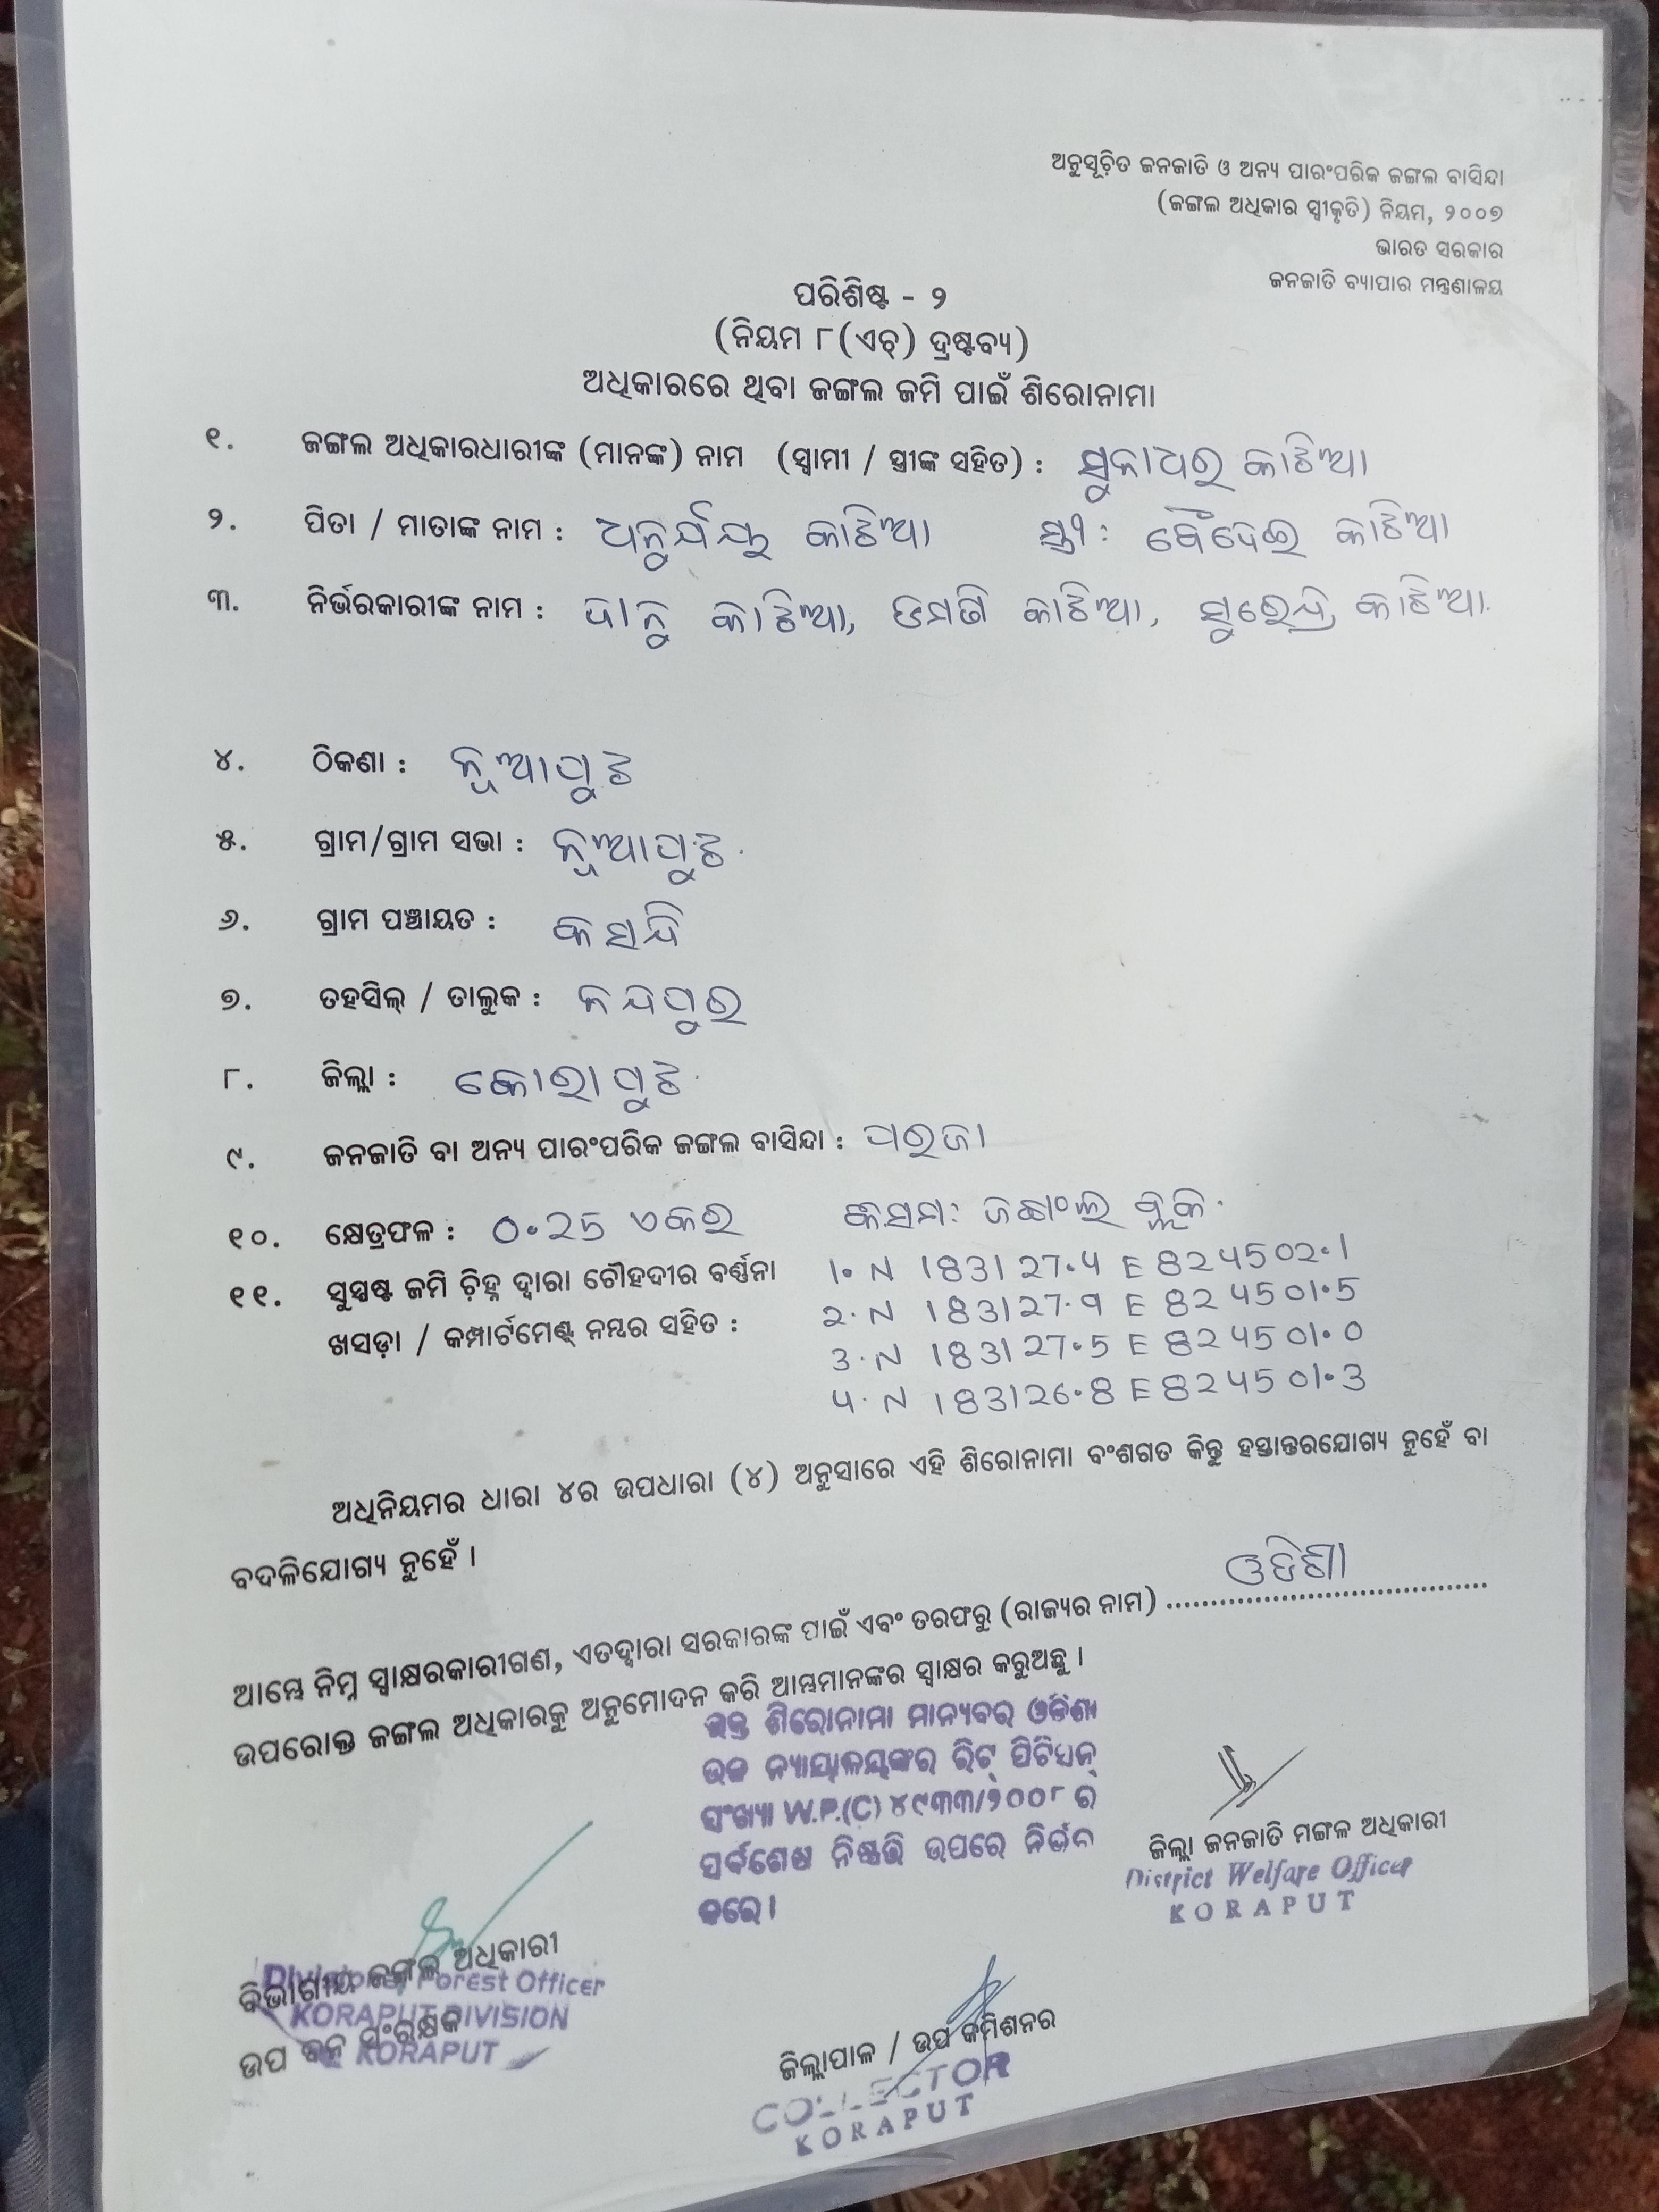 ଅନୁସୂଚିତ ଜନଜାତି ଓ ଅନ୍ୟ ପାରଂପରିକ ଜଙ୍ଗଲ ବାସିନ୍ଦା
(ଜଙ୍ଗଲ ଅଧିକାର ସ୍ୱୀକୃତି) ନିୟମ, ୨୦୦୭
ଭାରତ ସରକାର
ଜନଜାତି ବ୍ୟାପାର ମନ୍ତ୍ରଣାଳୟ
ପରିଶିଷ୍ଟ - ୨
(ନିୟମ ୮(ଏଚ୍) ଦ୍ରଷ୍ଟବ୍ୟ)
ଅଧିକାରରେ ଥିବା ଜଙ୍ଗଲ ଜମି ପାଇଁ ଶିରୋନାମା
୧. ଜଙ୍ଗଲ ଅଧିକାରଧାରୀଙ୍କ (ମାନଙ୍କ) ନାମ (ସ୍ୱାମୀ / ସ୍ତ୍ରୀଙ୍କ ସହିତ) : ସୁକାଧର କାଠିଆ
୨. ପିତା / ମାତାଙ୍କ ନାମ : କାଠିଆ ସ୍ତ୍ରୀ : କାଠିଆ
୩. ନିର୍ଭରକାରୀଙ୍କ ନାମ : ଦାନୁ କାଠିଆ, କାଠିଆ, ସୁରେନ୍ଦ୍ର କାଠିଆ.
୪. ଠିକଣା : ନୂଆପୁଟ
୫. ଗ୍ରାମ/ଗ୍ରାମ ସଭା : ନୂଆପୁଟ
୬. ଗ୍ରାମ ପଞ୍ଚାୟତ : କସନ୍ଦି
୭. ତହସିଲ୍ / ତାଲୁକ : ନନ୍ଦପୁର
୮. ଜିଲ୍ଲା : କୋରାପୁଟ
୯. ଜନଜାତି ବା ଅନ୍ୟ ପାରଂପରିକ ଜଙ୍ଗଲ ବାସିନ୍ଦା : ପରଜା
୧୦. କ୍ଷେତ୍ରଫଳ : 0.25 ଏକର କିସମ:
୧୧. ସୁସ୍ପଷ୍ଟ ଜମି ଚିହ୍ନ ଦ୍ୱାରା ଚୌହଦୀର ବର୍ଣ୍ଣନା 1. N 183127.4 E 824502.1
2. N 183127.9 E 824501.5
ଖସଡ଼ା / କମ୍ପାର୍ଟମେଣ୍ଟ୍ ନମ୍ବର ସହିତ : 3. N 183127.5 E 824501.0
4. N 183126.8 E 824501.3
ଅଧିନିୟମର ଧାରା ୪ର ଉପଧାରା (୪) ଅନୁସାରେ ଏହି ଶିରୋନାମା ବଂଶଗତ କିନ୍ତୁ ହସ୍ତାନ୍ତରଯୋଗ୍ୟ ନୁହେଁ ବା
ବଦଳିଯୋଗ୍ୟ ନୁହେଁ ।
ଆମ୍ଭେ ନିମ୍ନ ସ୍ୱାକ୍ଷରକାରୀଗଣ, ଏତଦ୍ୱାରା ସରକାରଙ୍କ ପାଇଁ ଏବଂ ତରଫରୁ (ରାଜ୍ୟର ନାମ) ଓଡିଶା
ଉପରୋକ୍ତ ଜଙ୍ଗଲ ଅଧିକାରକୁ ଅନୁମୋଦନ କରି ଆମ୍ଭମାନଙ୍କର ସ୍ୱାକ୍ଷର କରୁଅଛୁ ।
ଉକ୍ତ ଶିରୋନାମା ମାନ୍ୟବର ଓଡିଶା
ଉଚ୍ଚ ନ୍ୟାୟାଳୟଙ୍କର ରିଟ୍ ପିଟିସନ୍
ସଂଖ୍ୟା W.P.(C) ୪୯୩୩/୨୦୦୮ ର
ସର୍ବଶେଷ ନିଷ୍ପତ୍ତି ଉପରେ ନିର୍ଭର
କରେ।
ଜିଲ୍ଲା ଜନଜାତି ମଙ୍ଗଳ ଅଧିକାରୀ
District Welfare Officer
KORAPUT
ବିଭାଗୀୟ ଜଙ୍ଗଲ ଅଧିକାରୀ
Divisional Forest Officer
KORAPUT DIVISION
ଉପ ବନ ସଂରକ୍ଷକ
KORAPUT
ଜିଲ୍ଲାପାଳ / ଉପ କମିଶନର
COLLECTOR
KORAPUT